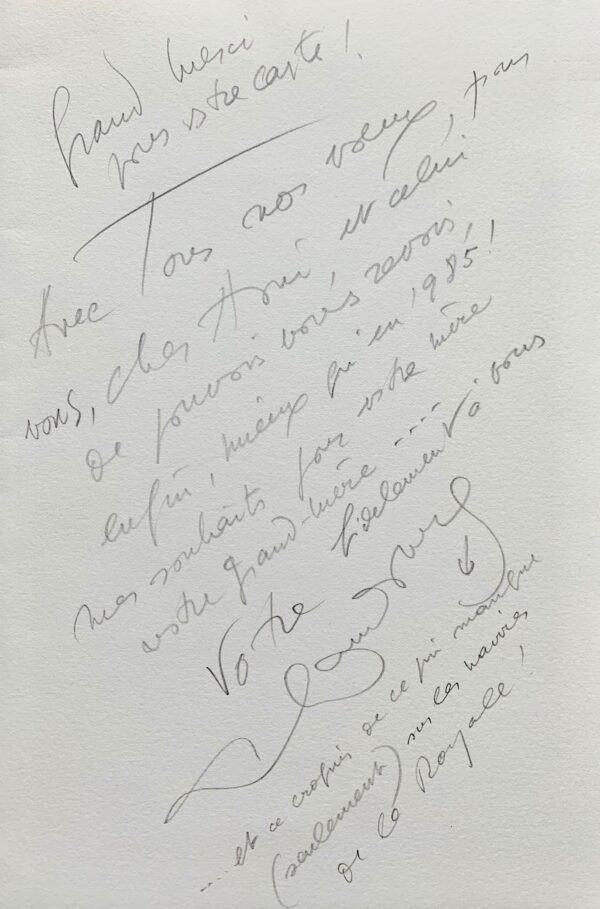 Grand merci
pour votre carte !
Avec Tous nos voeux, pour
vous, cher Ami, et celui
de pouvoir vous revoir,
enfin, mieux qu'en 1985 !
mes souhaits pour votre mère
votre grand-mère ....
Votre fidèlement à vous
.... et ce croquis de ce qui manque
(seulement) sur les navires
de la Royale !